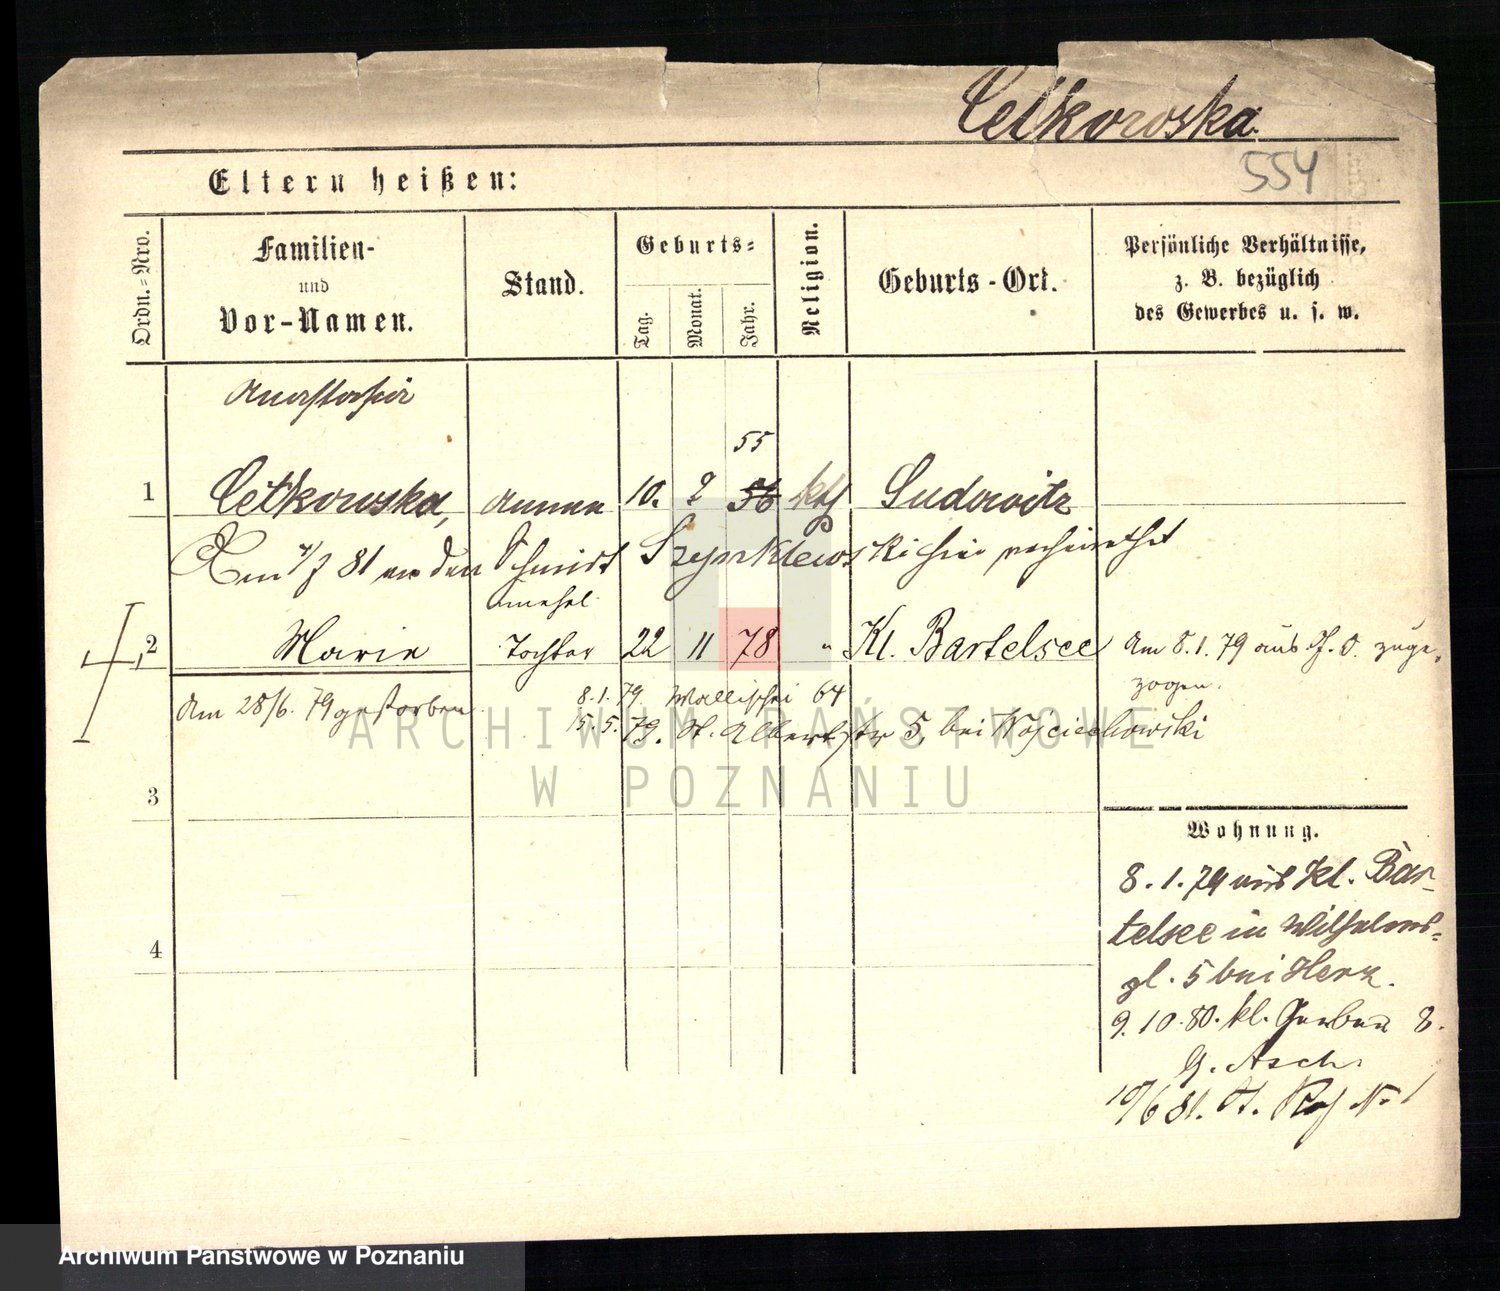 Cetkowska.
554
Eltern heißen:
Ordn.-Nro.
Familien-
und
Vor-Namen.
Stand.
Geburts-
Tag. Monat. Jahr.
Religion.
Geburts-Ort.
Persönliche Verhältnisse,
z. B. bezüglich
des Gewerbes u. s. w.
Anastasia
55
1 Cetkowska, Amme 10. 2 56 kth Sudowitz
Am 81 an den Schmidt Szymklewski hier verheirathet
unehel.
2 Marie Tochter 22 11 78 " Kl. Bartelsee Am 8.1.79 aus J. O. zuge-
zogen.
Am 28/6. 79 gestorben
8.1.79. Wallischei 64
15.5.79. St. Adalbertstr 5, bei Wojciechowski
3
4
Wohnung.
8.1.79 aus Kl. Bar-
telsee in Wilhelms-
pl. 5 bei Herz.
9.10.80. kl. Gerber 8.
b. Asch.
10/6 81. No 1
ARCHIWUM PAŃSTWOWE
W POZNANIU
Archiwum Państwowe w Poznaniu